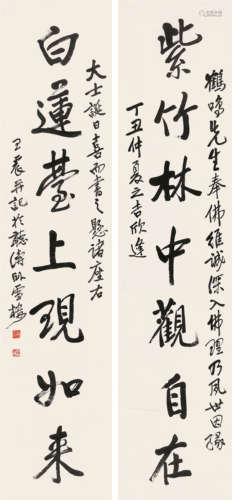 紫竹林中觀自在
鶴鳴先生奉佛維誠深入佛理乃夙世因緣
丁丑仲夏之吉欣逢
大士誕日喜而書之懸諸座右
白蓮臺上現如来
王震并記於聽濤臥雪樓